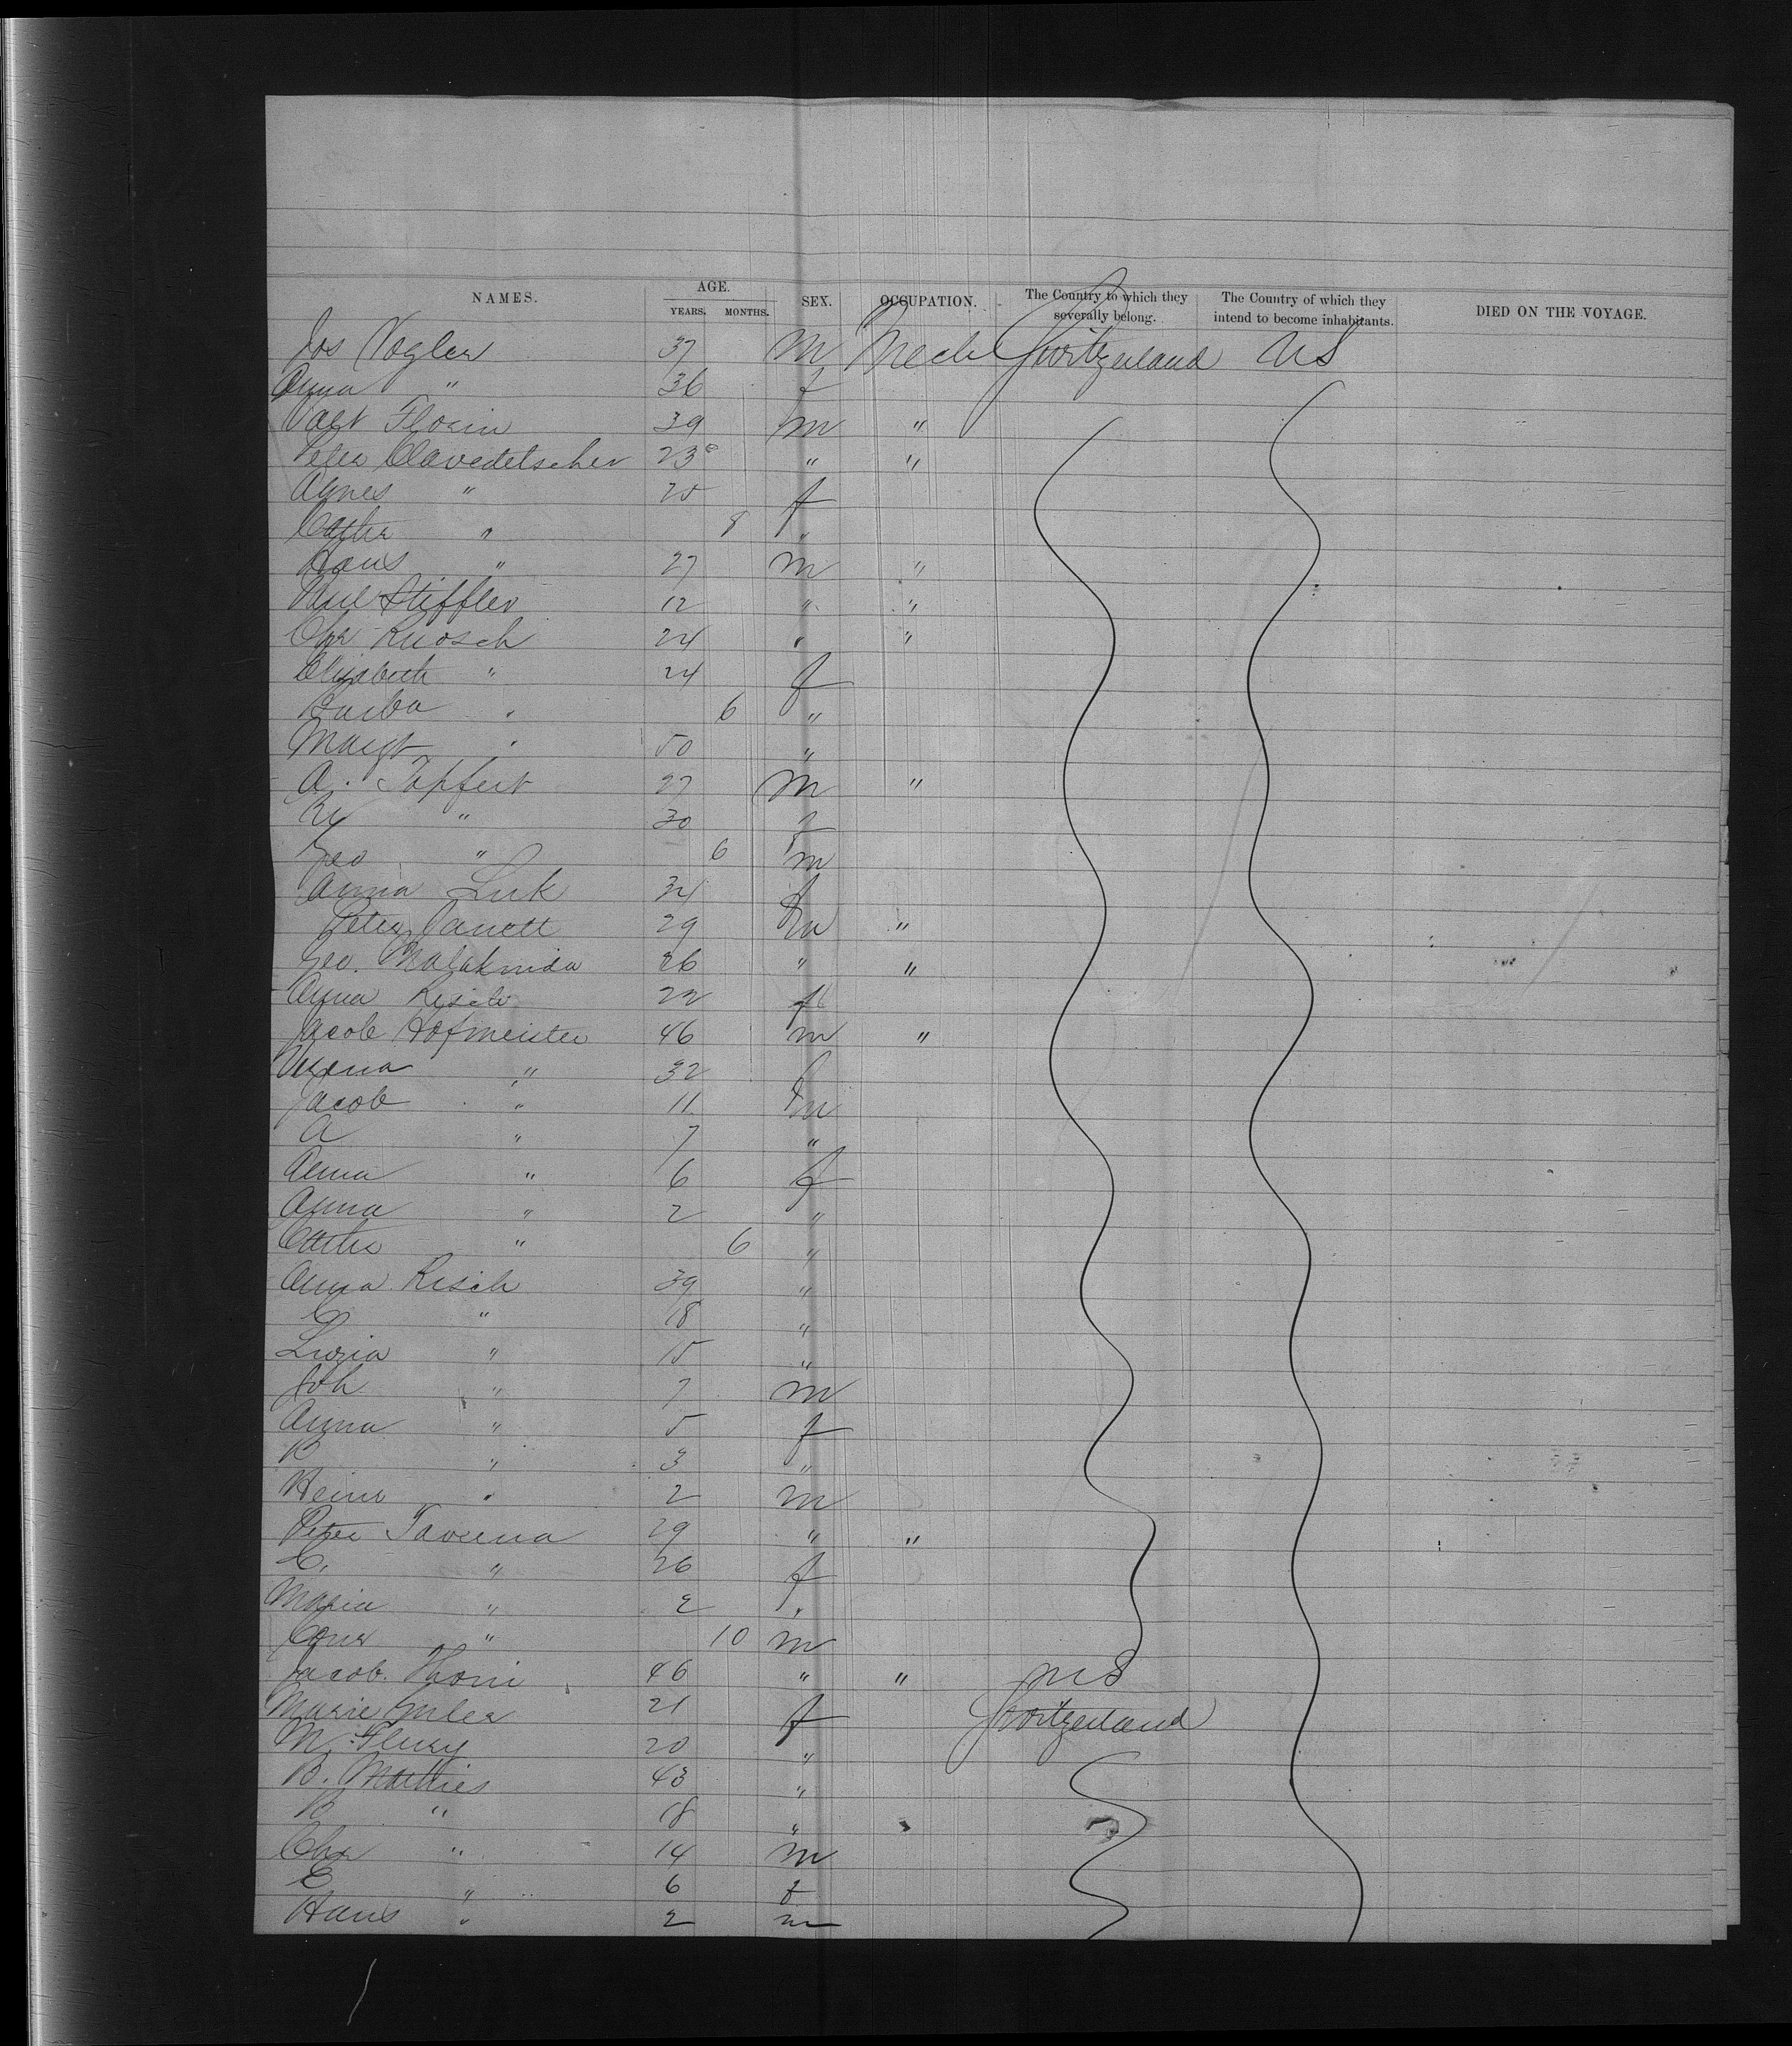 NAMES. AGE. YEARS. MONTHS. SEX. OCCUPATION. The Country to which they severally belong. The Country of which they intend to become inhabitants. DIED ON THE VOYAGE.
Jos Vogler 37 m Mech Switzerland US
Anna " 36 f
Valt Florin 39 m "
Peter Clavedetscher 23 " "
Agnes " 25 f
Cathr " 8 "
Hans " 27 m "
Paul Stiffler 12 " "
Chr Ruosch 24 " "
Elizabeth " 24 f
Barba " 6 "
Margt " 50 "
A. Tapfert 27 m "
" 30 f
Geo " 6 m
Anna Luk 34 f
Peter Janett 29 m "
Geo. 26 " "
Anna Risch 22 f
Jacob Hofmeister 46 m "
Verena " 32 f
Jacob " 11 m
A " 7 "
Anna " 6 f
Anna " 2 "
" 6 "
Anna Risch 39 "
C " 18 "
Luzia " 15 "
Joh " 7 m
Anna " 5 f
B " 3 "
Heinr " 2 m
Peter Taverna 29 " "
C. " 26 f
Maria " 2 "
Conr " 10 m
Jacob Thoni 46 " " US
Marie Guler 21 f Switzerland
M. Flury 20 "
B. Matthies 43 "
B " 18 "
Chr " 14 m
E " 6 f
Hans " 2 m